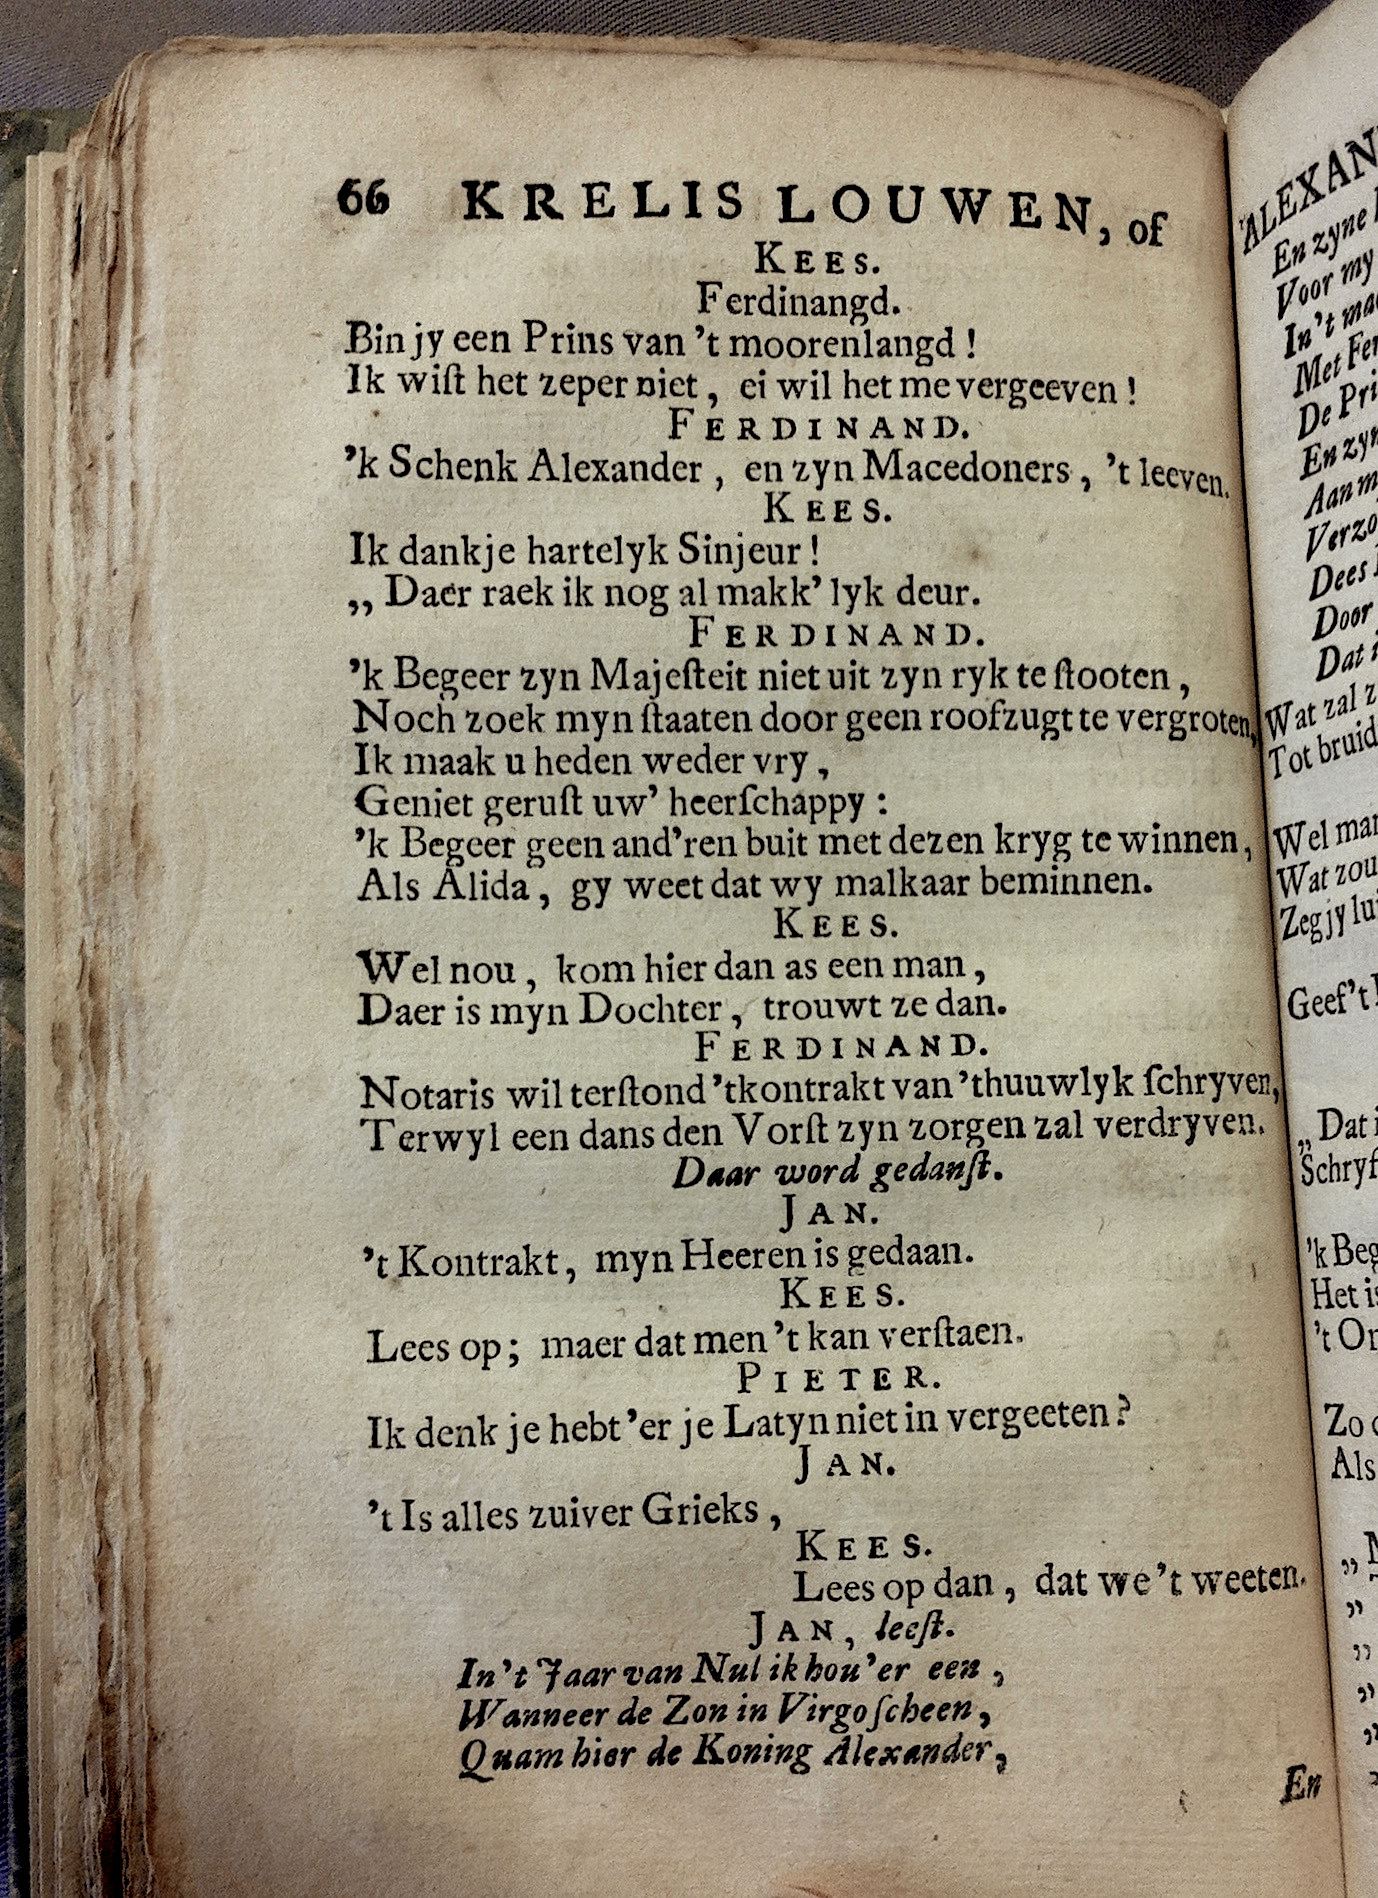 66 KRELIS LOUWEN, of
KEES.
Ferdinangd.
Bin jy een Prins van 't moorenlangd !
Ik wiſt het zeper niet, ei wil het me vergeeven !
FERDINAND.
'k Schenk Alexander, en zyn Macedoners, 't leeven.
KEES.
Ik dank je hartelyk Sinjeur !
,, Daer raek ik nog al makk'lyk deur.
FERDINAND.
'k Begeer zyn Majeſteit niet uit zyn ryk te ſtooten,
Noch zoek myn ſtaaten door geen roofzugt te vergroten,
Ik maak u heden weder vry,
Geniet geruſt uw' heerſchappy :
'k Begeer geen and'ren buit met dezen kryg te winnen,
Als Alida, gy weet dat wy malkaar beminnen.
KEES.
Wel nou, kom hier dan as een man,
Daer is myn Dochter, trouwt ze dan.
FERDINAND.
Notaris wil terſtond 't kontrakt van 't huuwlyk ſchryven,
Terwyl een dans den Vorſt zyn zorgen zal verdryven.
Daar word gedanſt.
JAN.
't Kontrakt, myn Heeren is gedaan.
KEES.
Lees op; maer dat men 't kan verſtaen.
PIETER.
Ik denk je hebt 'er je Latyn niet in vergeeten?
JAN.
't Is alles zuiver Grieks,
KEES.
Lees op dan, dat we 't weeten.
JAN, leeſt.
In 't Jaar van Nul ik hou 'er een,
Wanneer de Zon in Virgo ſcheen,
Quam hier de Koning Alexander,
En
ALEXAN
En zyne
Voor my
In 't
Met
De
En
Aan
Dees
Door
Dat
Wat zal
Tot bruid
Wel
Wat zou
Zeg jy
Geef 't
,, Dat
Schryf
'k
Het
't
Zo
Als